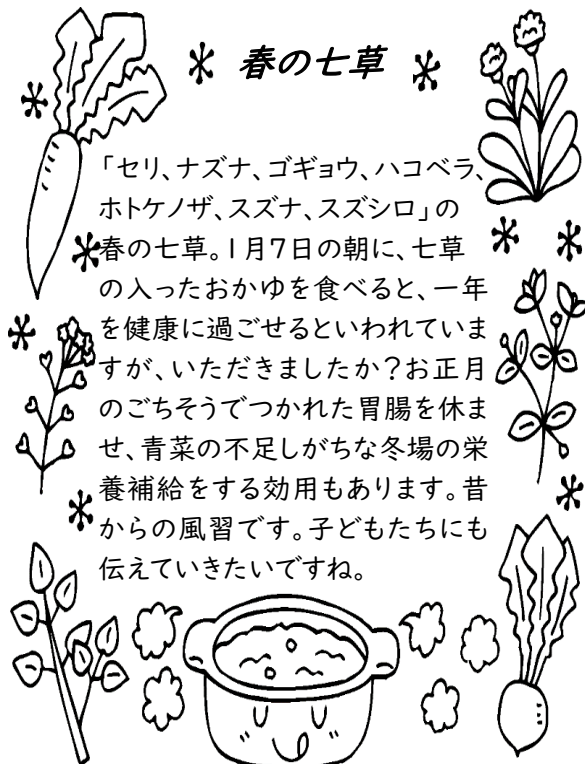 春の七草
「セリ、ナズナ、ゴギョウ、ハコベラ、
ホトケノザ、スズナ、スズシロ」の
春の七草。1月7日の朝に、七草
の入ったおかゆを食べると、一年
を健康に過ごせるといわれていま
すが、いただきましたか?お正月
のごちそうでつかれた胃腸を休ま
せ、青菜の不足しがちな冬場の栄
養補給をする効用もあります。昔
からの風習です。子どもたちにも
伝えていきたいですね。